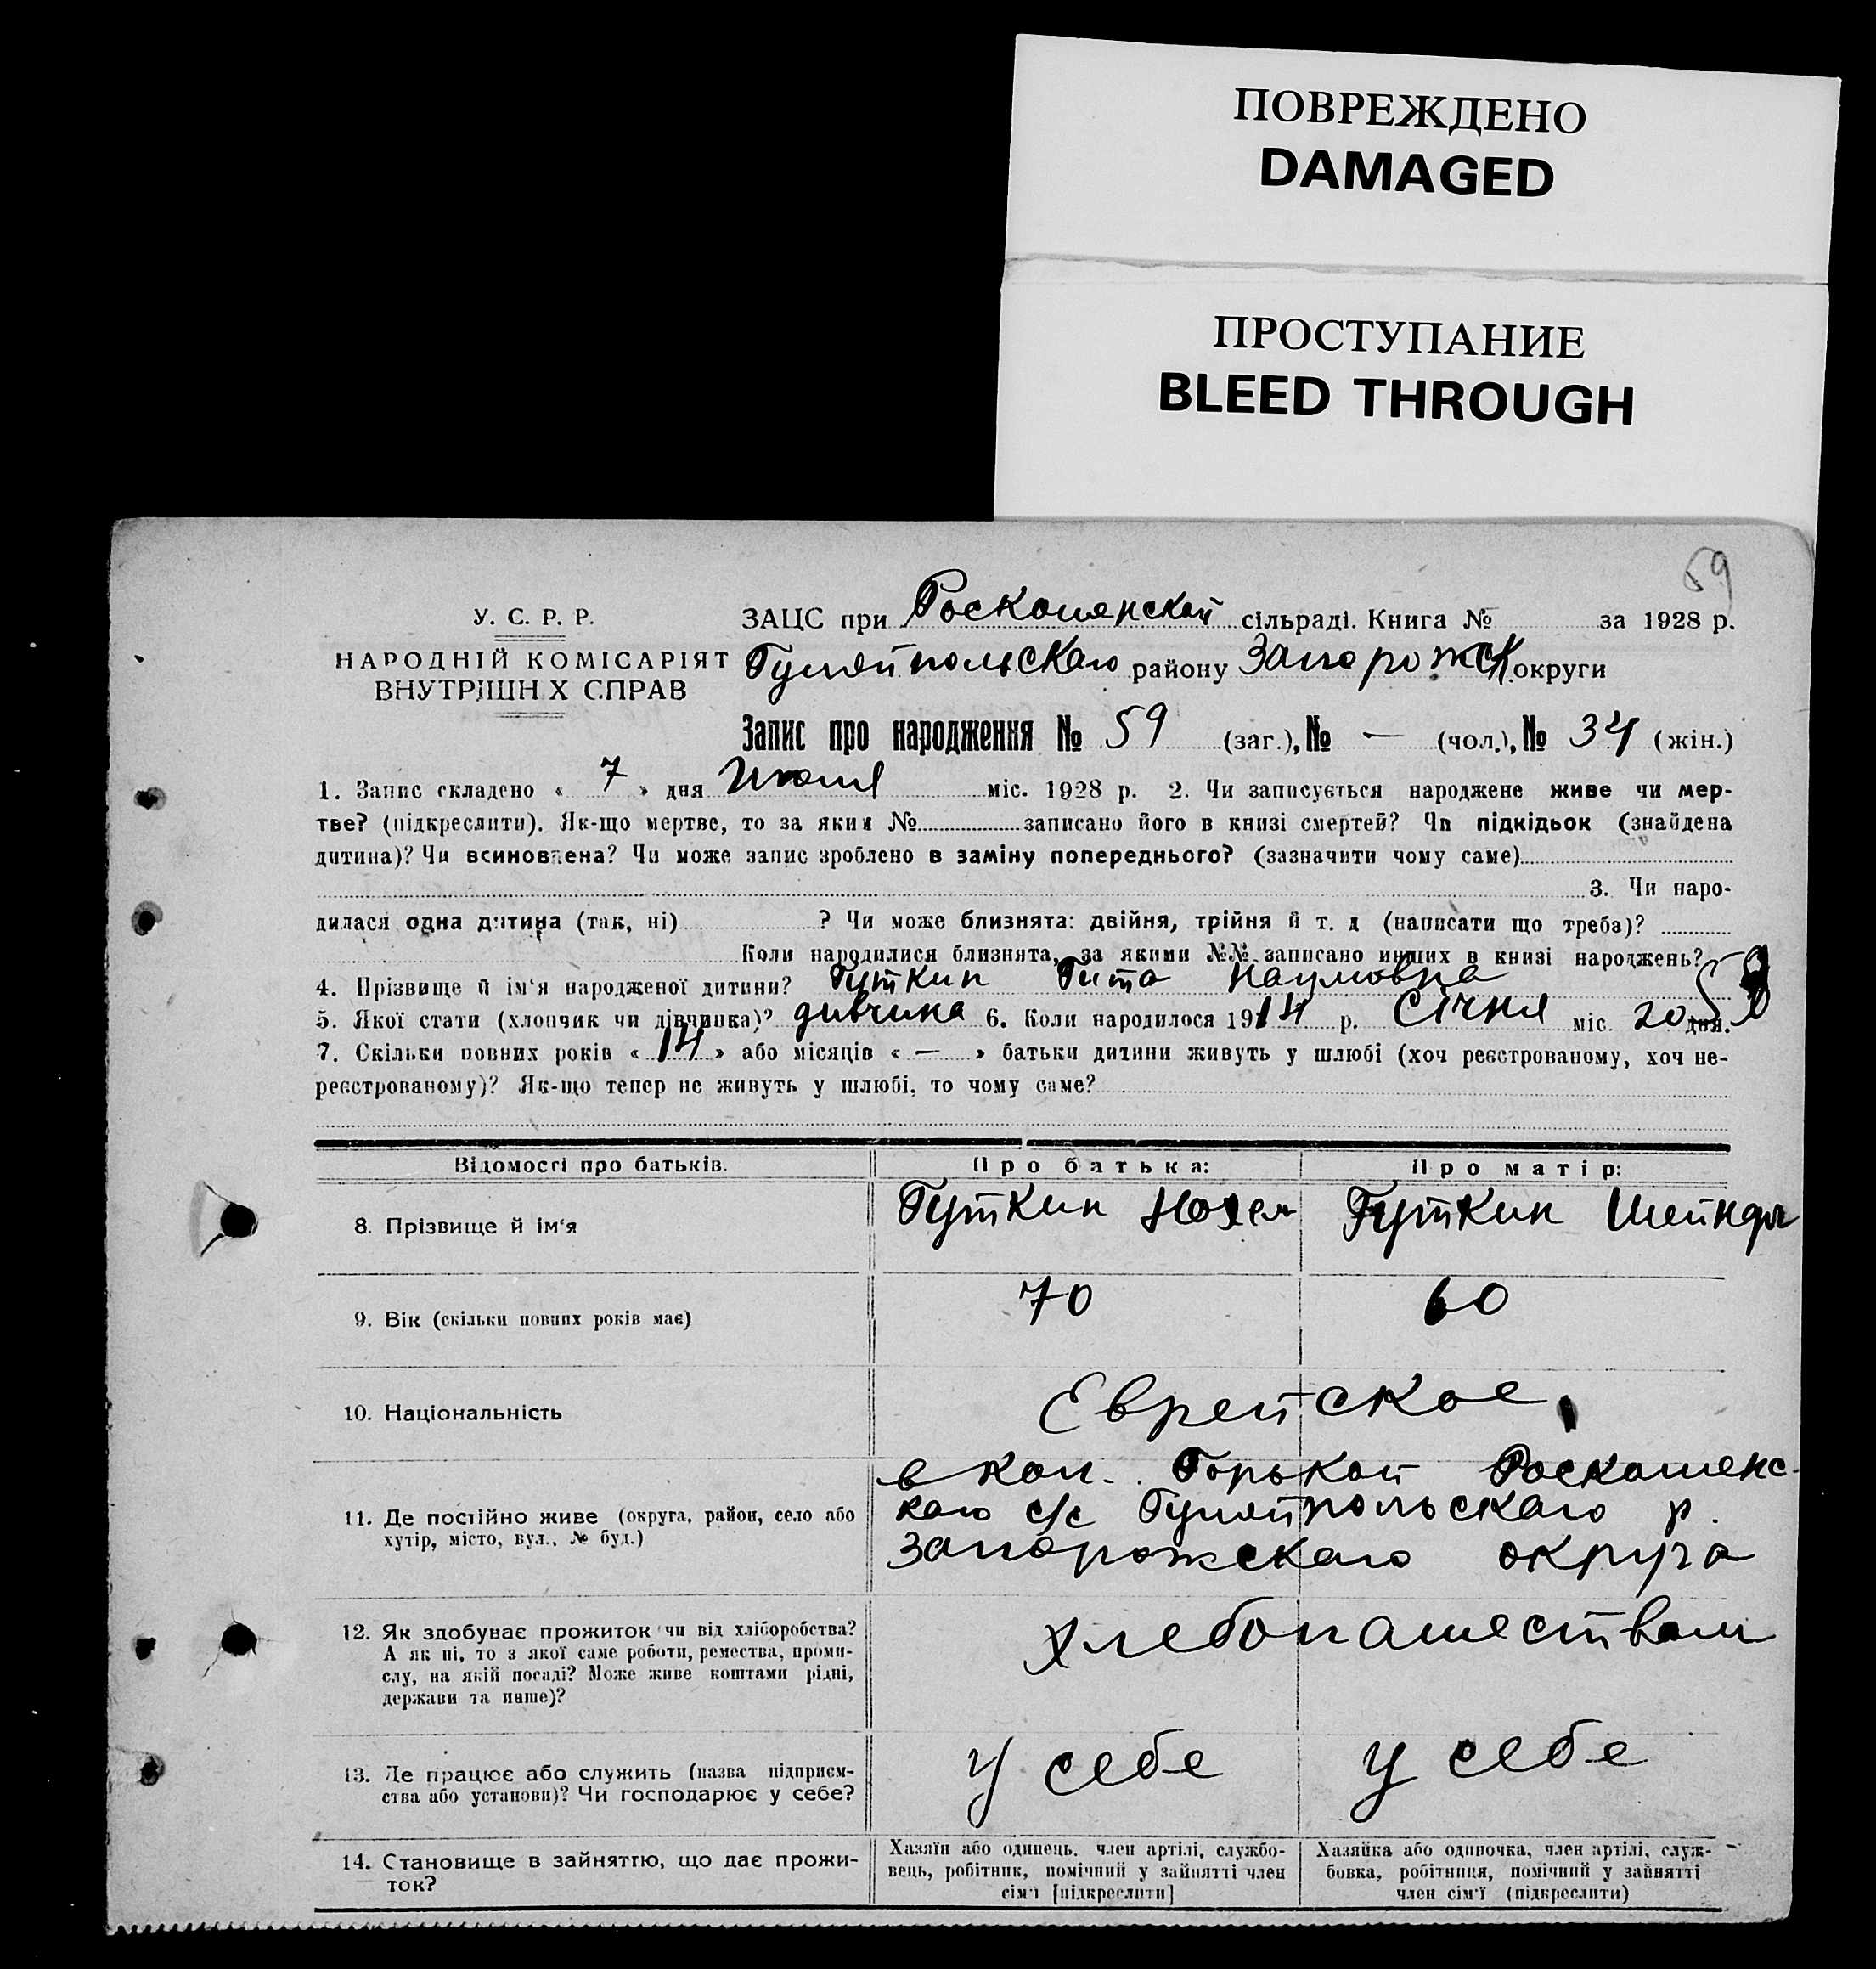 ПОВРЕЖДЕНО
DAMAGED
ПРОСТУПАНИЕ
BLEED THROUGH
59
У. С. Р. Р.
НАРОДНІЙ КОМІСАРІЯТ
ВНУТРІШНІХ СПРАВ
ЗАЦС при сільраді. Книга № за 1928 р.
Гуляйпольскаго району Запорожск округи
Запис про народження № 59 (заг.), № — (чол.), № 34 (жін.)
1. Запис складено « 7 » дня Июля міс. 1928 р. 2. Чи записується народжене живе чи мер-
тве? (підкреслити). Як-що мертве, то за яким № записано його в книзі смертей? Чи підкідьок (знайдена
дитина)? Чи всиновлена? Чи може запис зроблено в заміну попереднього? (зазначити чому саме)
3. Чи наро-
дилася одна дитина (так, ні) ? Чи може близнята: двійня, трійня й т. д (написати що треба)?
Коли народилися близнята, за якими №№ записано инших в книзі народжень?
4. Прізвище й ім'я народженої дитини? Гуткин Гита Наумовна
5. Якої стати (хлопчик чи дівчинка)? дивчина 6. Коли народилося 1914 р. Січня міс. 20 дня. 59
7. Скільки повних років « 14 » або місяців « — » батьки дитини живуть у шлюбі (хоч реєстрованому, хоч не-
реєстрованому)? Як-що тепер не живуть у шлюбі, то чому саме?
Відомості про батьків. Про батька: Про матір:
8. Прізвище й ім'я Гуткин Нохем Гуткин Шейндл
9. Вік (скільки повних років має) 70 60
10. Національність Еврейское
11. Де постійно живе (округа, район, село або
хутір, місто, вул., № буд.)
в кол. Горькой Роскошенс-
каго с/с Гуляйпольскаго р.
Запорожскаго округа
12. Як здобуває прожиток чи від хліборобства?
А як ні, то з якої саме роботи, ремества, проми-
слу, на якій посаді? Може живе коштами рідні,
держави та инше)?
Хлебопашеством
13. Де працює або служить (назва підприєм-
ства або установи)? Чи господарює у себе?
у себе у себе
14. Становище в зайняттю, що дає прожи-
ток?
Хазяїн або одинець, член артілі, службо-
вець, робітник, помічний у зайнятті член
сім'ї [підкреслити]
Хазяйка або одиночка, член артілі, служ-
бовка, робітниця, помічний у зайнятті
член сім'ї (підкреслити)